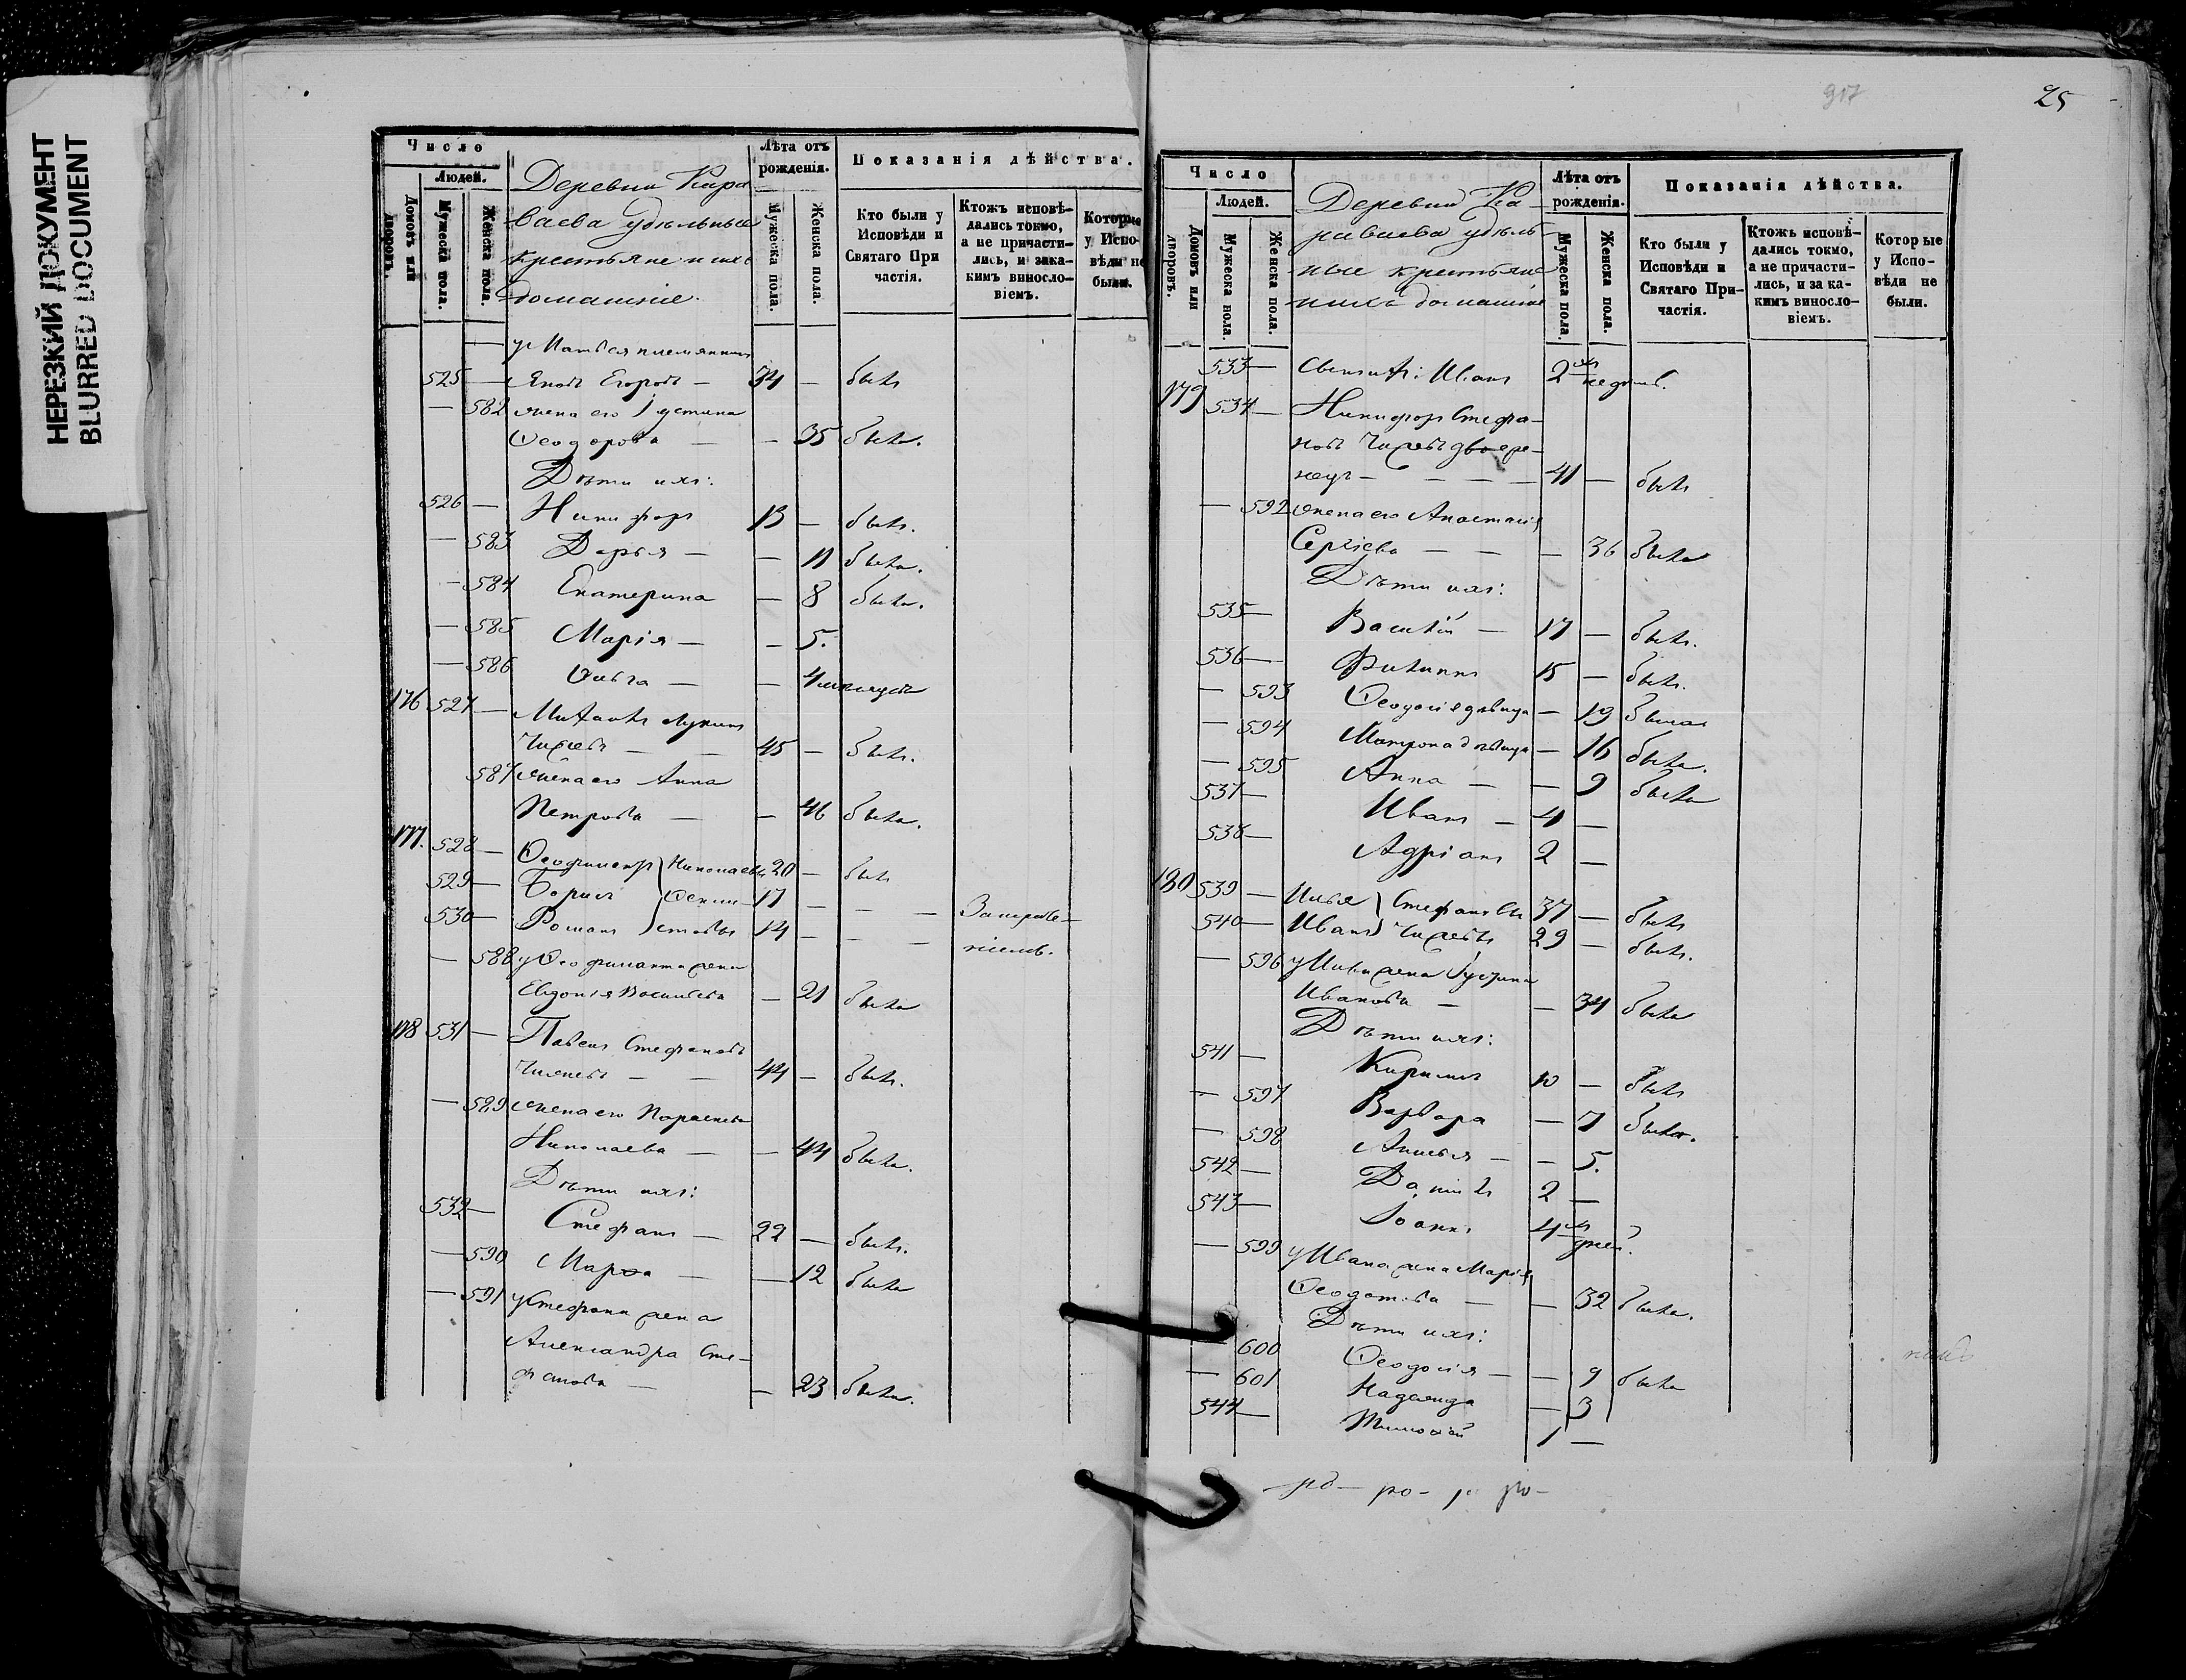 НЕРЕЗКИЙ ДОКУМЕНТ
BLURRED DOCUMENT
Число
Людей.
Домовъ или дворовъ.
Мужеска пола.
Женска пола.
Деревни Кара
ваева удѣльные
крестьяне и ихъ
домашніе.
Лѣта отъ рожденія.
Мужеска пола.
Женска пола.
Показанія дѣйства.
Кто были у Исповѣди и Святаго При частія.
Ктожъ исповѣ- дались токмо, а не причасти- лись, и зака- кимъ винословіемъ.
Которые у Испо- вѣди не были.
— у Матвея племянникъ
525 — Яковъ Егоровъ — 34 — былъ
— 582 жена его Іустина
Ѳеодорова — — 35 была.
Дѣти ихъ:
526 — Никифоръ 13 — былъ.
— 583 Дарья — — 11 была.
— 584 Екатерина — 8 была.
— 585 Марія — — 5.
— 586 Ольга — — 4
176 527 — Михаилъ Лукинъ
— — 45 — былъ.
587 жена его Анна
Петрова — — 46 была.
177. 528 — Ѳеофилактъ Николаевы 20 — былъ
529 — Борисъ 17 — — —
530 — Романъ 14 — — —
— 588 у Ѳеофилакта жена
Евдокія Васильева — 21 была
178 531 — Павелъ Стефановъ
— — 44 — былъ.
— 589 жена его Параскева
Николаева — — 44 была.
Дѣти ихъ:
532 — Стефанъ — 22 — былъ.
— 590 Марѳа — — 12 была
— 591 у Стефана жена
Александра Сте-
фанова — — 23 была.
917
25
Число
Людей.
Домовъ или дворовъ.
Мужеска пола.
Женска пола.
Деревни Ка-
раваева удѣль-
ные крестьяне
и ихъ домашніе
Лѣта отъ рожденія.
Мужеска пола.
Женска пола.
Показанія дѣйства.
Кто были у Исповѣди и Святаго При- частія.
Ктожъ исповѣ- дались токмо, а не причасти- лись, и за ка- кимъ виносло- віемъ.
Которые у Испо- вѣди не были.
533 — Иванъ 2
179 534 — Никифоръ Стефа-
новъ
— — — — 41 — былъ
— 592 жена его Анастасія
Сергіева — — — 36 была
Дѣти ихъ:
535 — Василій — 17 — былъ.
536 — Филиппъ 15 — былъ.
— 593 Ѳеодосія дѣвица — 19 была
— 594 Матрона дѣвица — 16 была.
— 595 Анна — — 9 была
537 — Иванъ — 4 —
538 — Адріанъ 2 —
180 539 — Илья Стефановы 37 — былъ
540 — Иванъ 29 — былъ.
— 596 у Ильи жена Іустина
Иванова — — 34 была
Дѣти ихъ:
541 — Кириллъ 10 — былъ
— 597 Варвара — 7 была.
— 598 Анисья — — 5.
542 — Даніилъ 2 —
543 — Іоаннъ 4 дней.
— 599 у Ивана жена Марія
Ѳеодотова — — 32 была.
Дѣти ихъ:
— 600 Ѳеодосія — — 9 была
— 601 Надежда — 3
544 — Тимоѳей 1 —